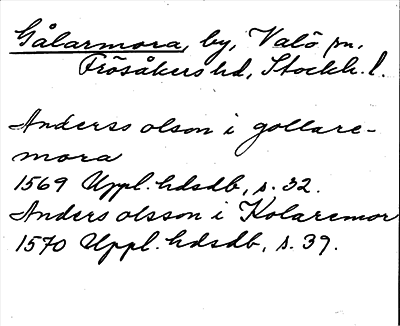 Gålarmora, by, Valö sn,
Frösåkers hd, Stockh. l.
Anderss olson i gollare-
mora
1569 Uppl. hdsdb, s. 32.
Anders olsson i Kolaremor
1570 Uppl. hdsdb, s. 39.